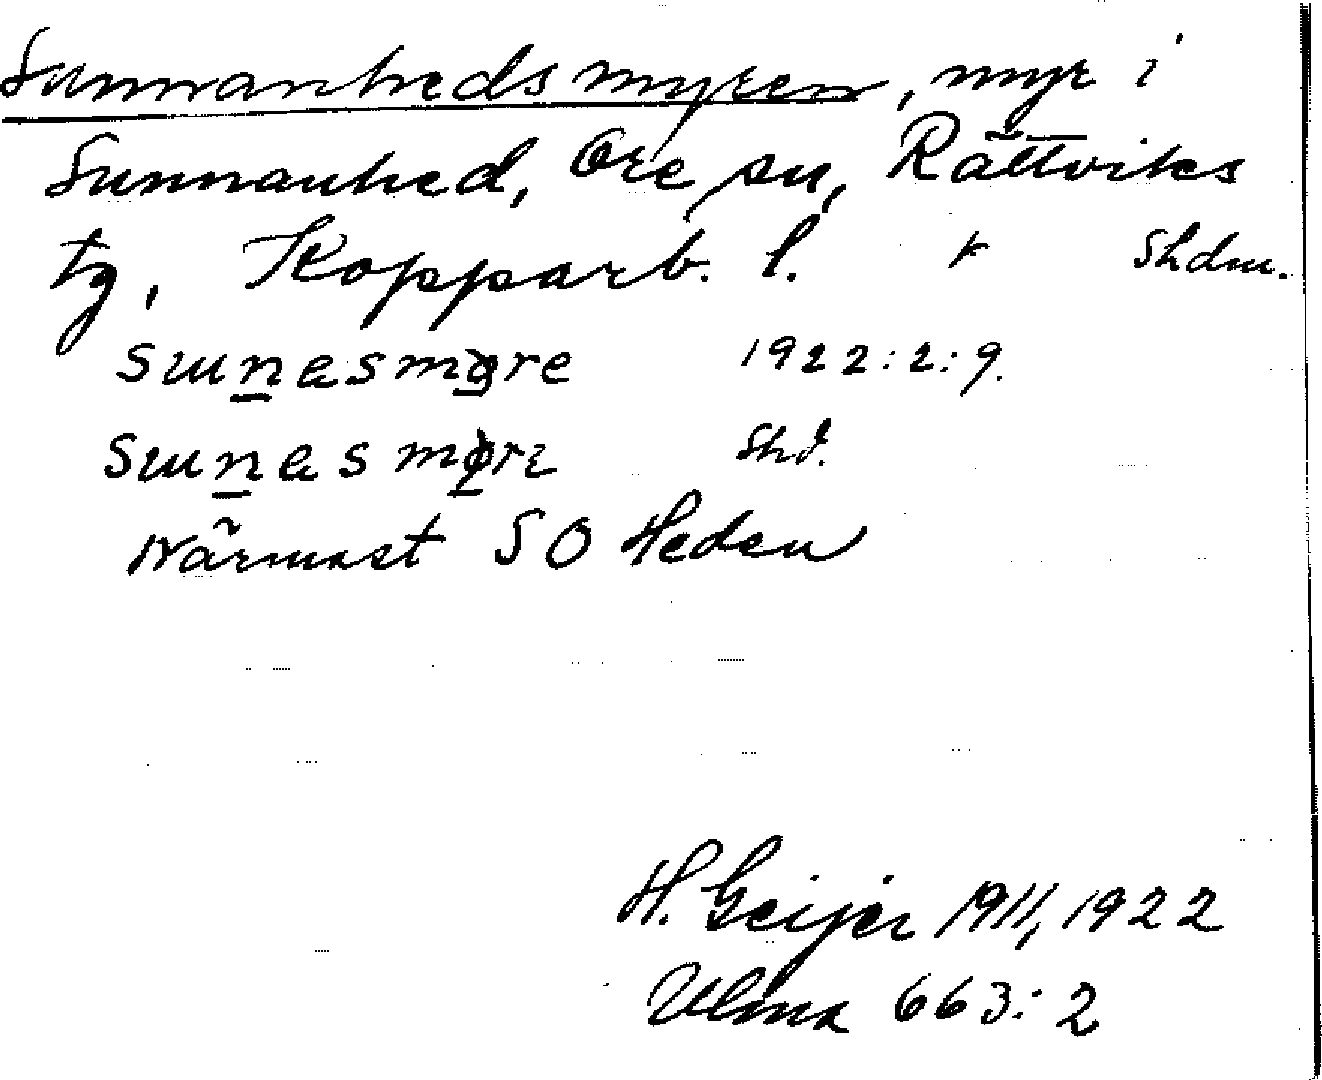 Sunnanhedsmyren, myr i
Sunnanhed, Ore sn, Rättviks
tg, Kopparb. l. + Shdm.
sunesmyre 1922:2:9.
sunesmøre Shd.
Närmast SO Heden
H. Geijer 1911, 1922
Ulma 663:2